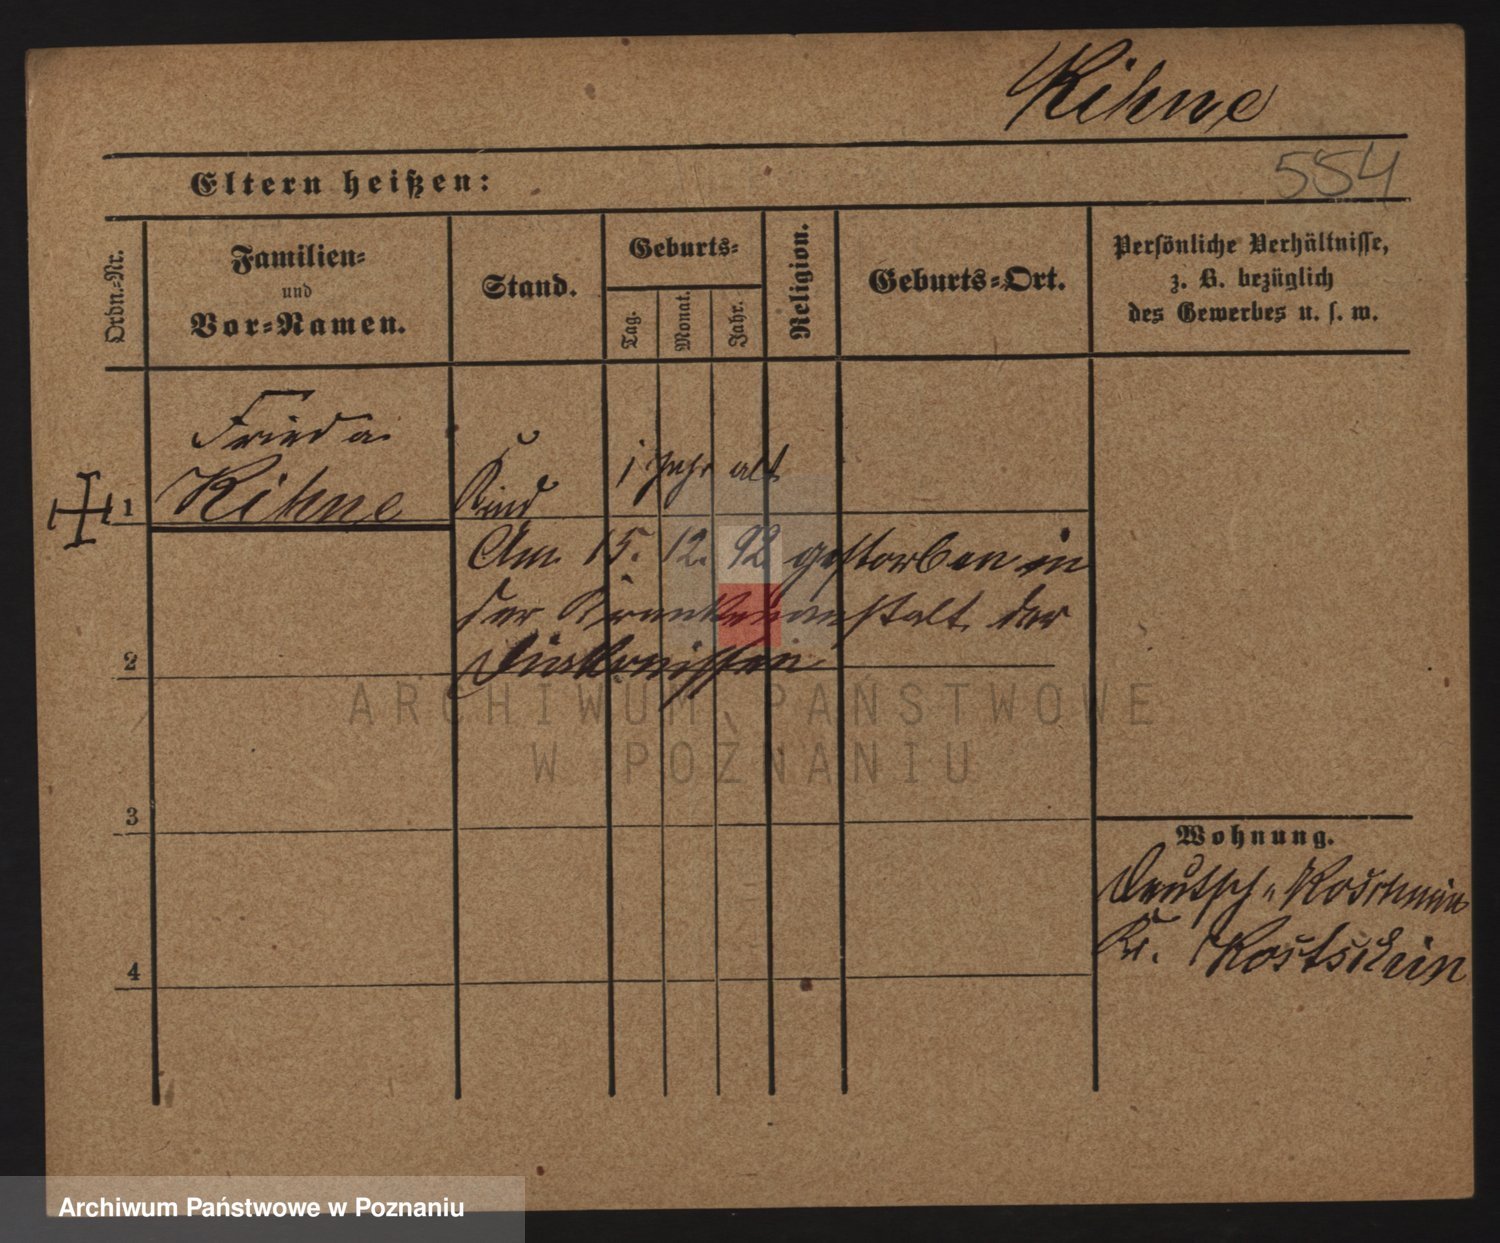 Kihne
554
Eltern heißen:
Ordn.-Nr.
Familien-
und
Vor-Namen.
Stand.
Geburts-
Tag.
Monat.
Jahr.
Religion.
Geburts-Ort.
Persönliche Verhältnisse,
z. B. bezüglich
des Gewerbes u. s. w.
Frieda
1 Kihne Kind 1 Jahr alt
Am 15. 12. 92 gestorben in
der Krankenanstalt der
2 Diakonissen
ARCHIWUM PAŃSTWOWE
W POZNANIU
3
Wohnung.
Deutsch-Koschmin
Kr. Kostschin
4
Archiwum Państwowe w Poznaniu